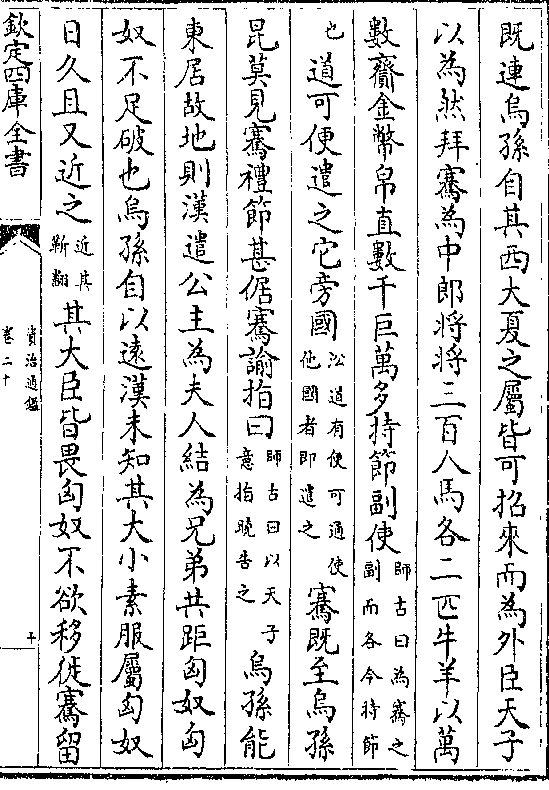 既連烏孫自其西大夏之屬皆可招來而為外臣天子
以為然拜騫為中郎將將三百人馬各二匹牛羊以萬
數齎金幣帛直數千巨萬多持節副使師古曰為騫之副而各令持節
也道可便遣之它旁國㳂道有便可通使他國者即遣之騫既至烏孫
昆莫見騫禮節甚倨騫諭指曰師古曰以天子意指曉告之烏孫能
東居故地則漢遣公主為夫人結為兄弟共距匈奴匈
奴不足破也烏孫自以遠漢未知其大小素服屬匈奴
日久且又近之近其靳翻其大臣皆畏匈奴不欲移徙騫留
欽定四庫全書
資治通鑑
卷二十
十